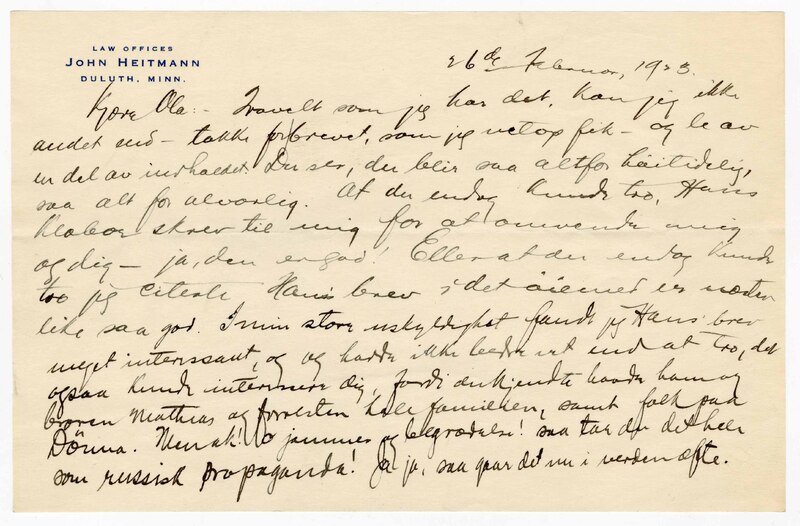 LAW OFFICES
JOHN HEITMANN
DULUTH, MINN.
26de Februar, 1923.
Kjære Ola:- Travelt som jeg har det, kan jeg ikke
andet end - takke for brevet, som jeg netop fik - og le av
en del av indholdet. Du ser, du blir saa altfor høitidelig,
saa alt for alvorlig. At du endog kunde tro, Hans
skrev til mig for at omvende mig
og dig - ja, den er god! Eller at du endog kunde
tro jeg citerte Hans brev i det øiemed er næsten
like saa god. I min store uskyldighet fandt jeg Hans' brev
meget interessant, og og hadde ikke bedre vet end at tro, det
ogsaa kunde interessere dig, fordi du kjendte baade ham og
broren Mathias og forresten hele familien, samt folk paa
Dönna. Men ak! o jammer og begrædelse! saa tar du det hele
som russisk propaganda! Ja ja, saa gaar det nu i verden ofte.